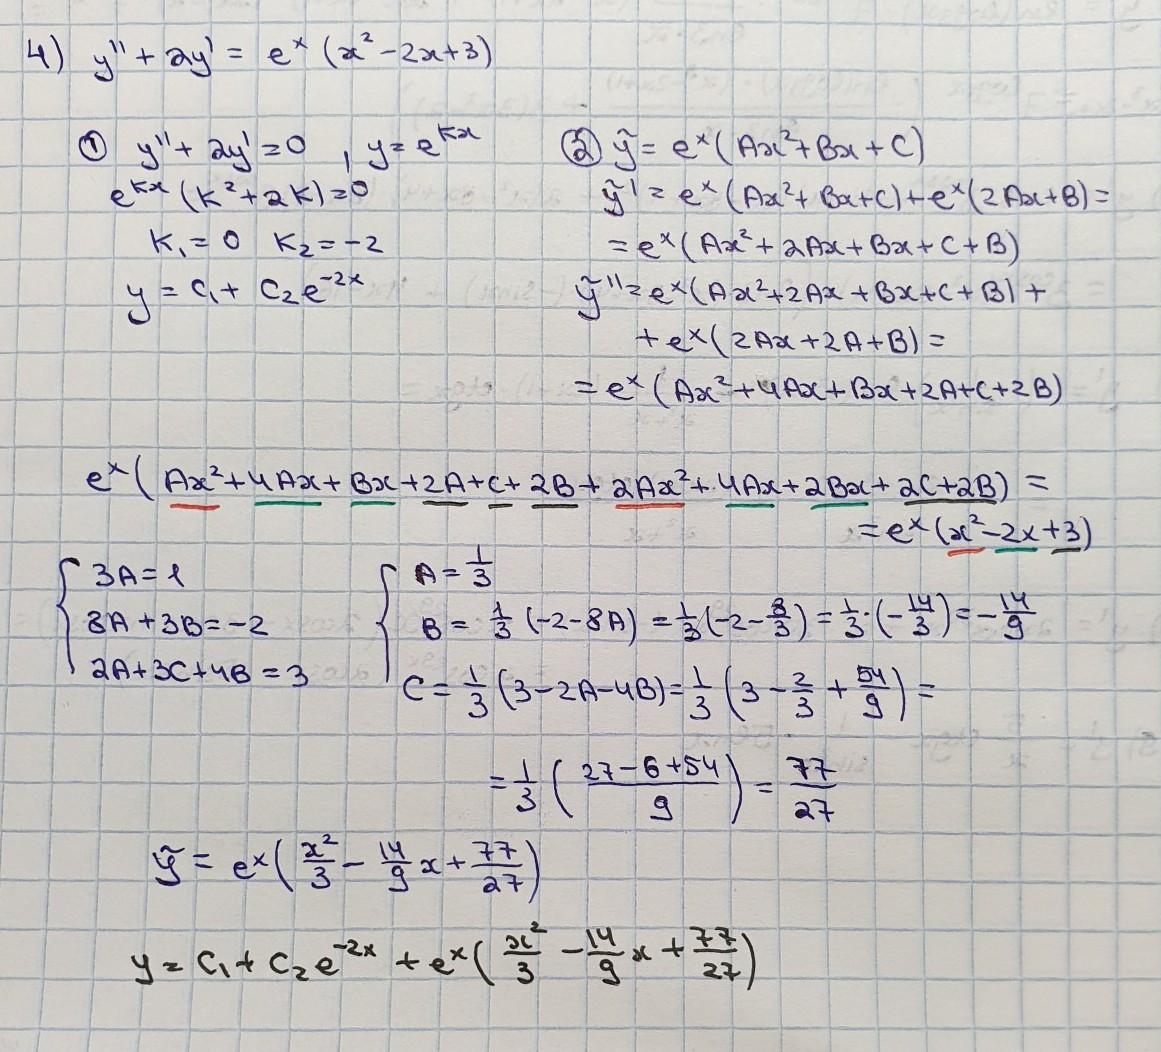 4) y'' + 2y' = eˣ (x² − 2x + 3)
① y'' + 2y' = 0 , y = e^{kx}
e^{kx} (k² + 2k) = 0
k₁ = 0 k₂ = −2
y = C₁ + C₂e^{−2x}
② ỹ = eˣ (Ax² + Bx + C)
ỹ' = eˣ (Ax² + Bx + C) + eˣ (2Ax + B) =
= eˣ (Ax² + 2Ax + Bx + C + B)
ỹ'' = eˣ (Ax² + 2Ax + Bx + C + B) +
+ eˣ (2Ax + 2A + B) =
= eˣ (Ax² + 4Ax + Bx + 2A + C + 2B)
eˣ ( Ax² + 4Ax + Bx + 2A + C + 2B + 2Ax² + 4Ax + 2Bx + 2C + 2B) =
= eˣ (x² − 2x + 3)
{ 3A = 1
8A + 3B = −2
2A + 3C + 4B = 3
{ A = 1/3
B = 1/3 (−2 − 8A) = 1/3 (−2 − 8/3) = 1/3 · (−14/3) = −14/9
C = 1/3 (3 − 2A − 4B) = 1/3 (3 − 2/3 + 54/9) =
= 1/3 ( (27 − 6 + 54)/9 ) = 77/27
ỹ = eˣ ( x²/3 − 14/9 x + 77/27 )
y = C₁ + C₂ e^{−2x} + eˣ ( x²/3 − 14/9 x + 77/27 )